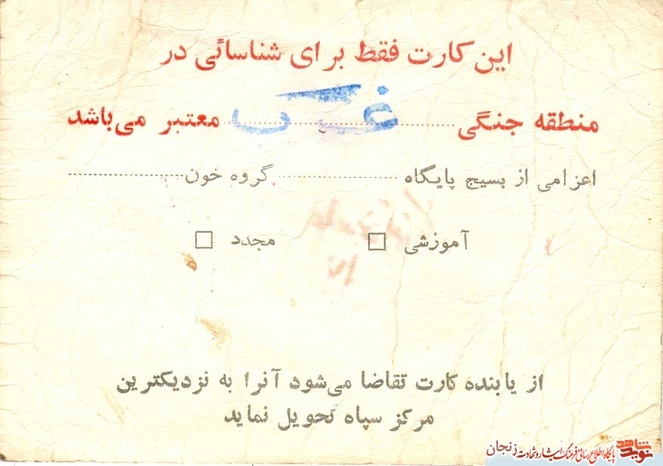 این کارت فقط برای شناسائی در
منطقه جنگی غرب معتبر می‌باشد
اعزامی از بسیج پایگاه گروه خون
آموزشی □ مجدد □
از یابنده کارت تقاضا می‌شود آنرا به نزدیکترین
مرکز سپاه تحویل نماید
نوید شاهد پایگاه اطلاع رسانی فرهنگ ایثار و شهادت زنجان